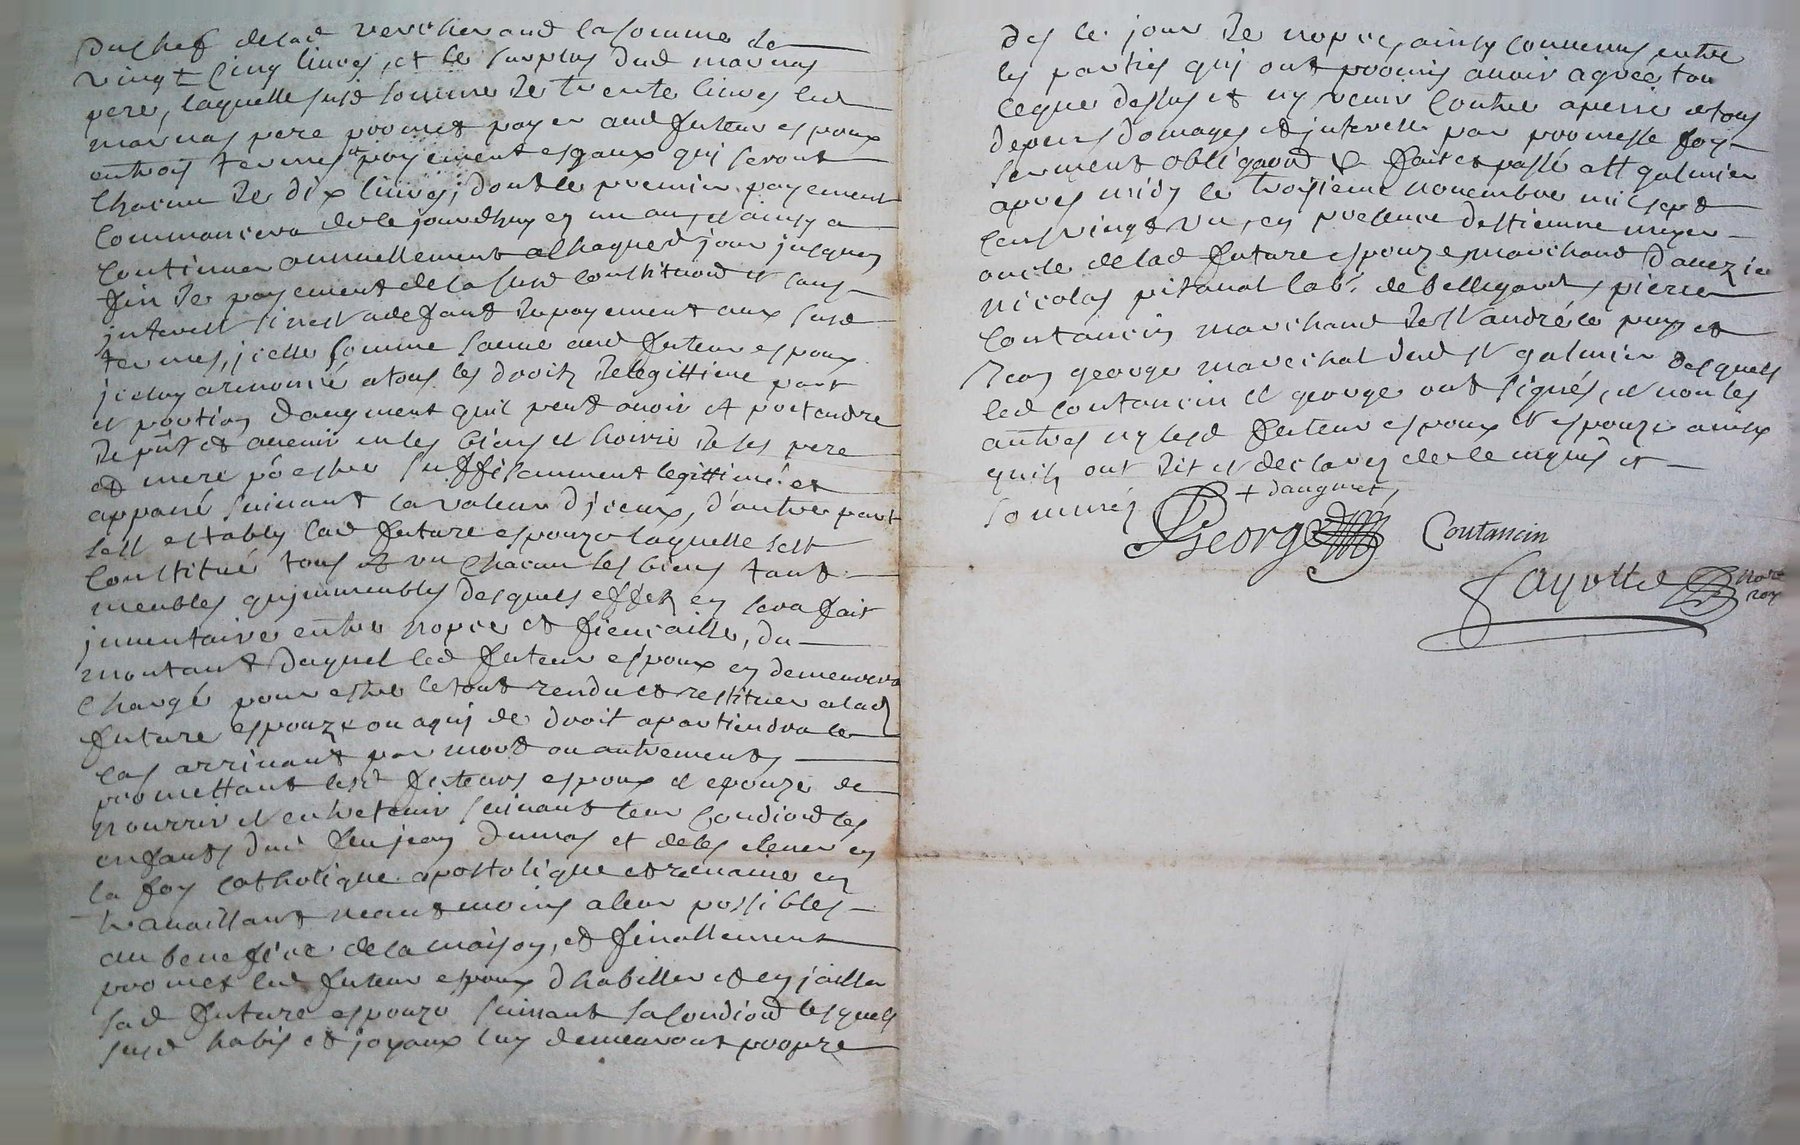 Du chef de lad verchierand la somme de
vingt cinq livres, et le surplus dud marnas
pere, laquelle susd somme de trente livres led
marnas pere promet payer aud futeur espoux
en trois termes et payement esgaux qui seront
chacun de dix livres, dont le premier payement
commancera de ce jourdhuy en un an, et ainsy a
continuer annuellement a chaque d jour jusques
fin de payement de la susd constituond et sans
interest sinon a defaut du payement aux susd
termes, icelle somme sauve aud futeur espoux
iceluy armonié a tous les droitz de legittime part
et portion daugment quil peut avoir et pretendre
de pnt et avenir en les biens et hoirie de ses pere
et mere po estre suffisamment legittimé et
appané suivant la valeur diceux, d'autre part
sest establi lad future espouze laquelle sest
constitué tous et un chacun ses biens tant
meubles qu immeubles desquels effetz en sera fait
inventaire entre nopce et fiencaille, du
montant duquel led futeur espoux en demeurera
chargé pour estre le tout rendu et restituer a lad
future espouze ou a qui de droit apartiendra le
cas arrivant par mort ou autrement
promettant lesd futeurs espoux et epouze de
nourrir et entretenir suivant leur condiond les
enfants dud feu jean dumas et de les elever en
la foy catholique apostolique et romaine en
travaillant neantmoins a leur possibles
au benefice de la maison, et finallement
promet led futeur espoux d habiller et enjoiller
sad future espouze suivant sa condiond lesquels
susd habis et joyaux luy demeuront propre
des le jour de nopces, ainsy convenus entre
les parties qui ont promis avoir agreé tou
ce que dessus et ny venir contre a peine de tous
depens domages et interestz par promesse foy
serment obligaond & fait et passé a St galmier
apres midy le troisieme novembre mil sept
cent vingt un, en presence destienne
oncle de lad future espouze marchand
nicolas pitaval labr. de bellegarde, pierre
Contancin marchand de St andré le puy et
Jean george marechal dud St galmier desquels
led contancin et george ont signés, et non les
autres ny lesd futeur espoux et espouze ainsy
quils ont dit et declarez de ce enquis et
sommez
+ daugmet
George Coutancin
Fayolle nore
roy